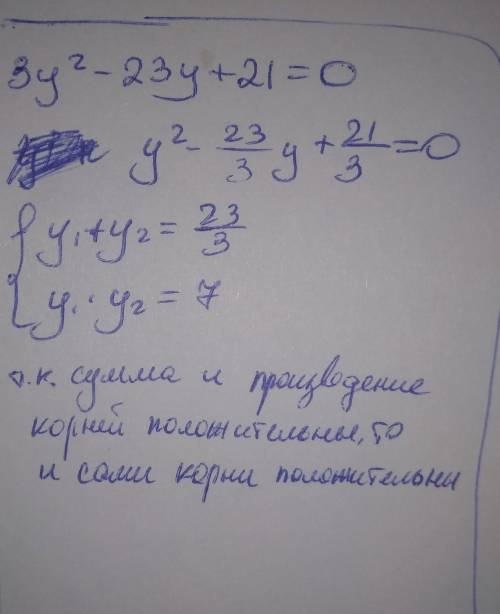 3y² - 23y + 21 = 0
y² - 23/3 y + 21/3 = 0
{ y₁ + y₂ = 23/3
{ y₁ · y₂ = 7
т.к. сумма и произведение
корней положительны, то
и сами корни положительны